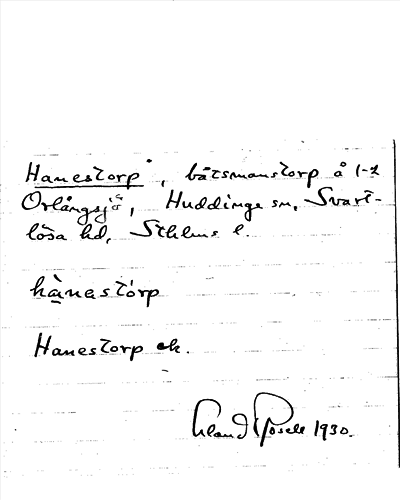 Hanestorp, båtsmanstorp å 1-2
Orlångsjö, Huddinge sn, Svart-
lösa hd, Sthlms l.
hànastórp
Hanestorp ek.
Erland Rosell 1930.